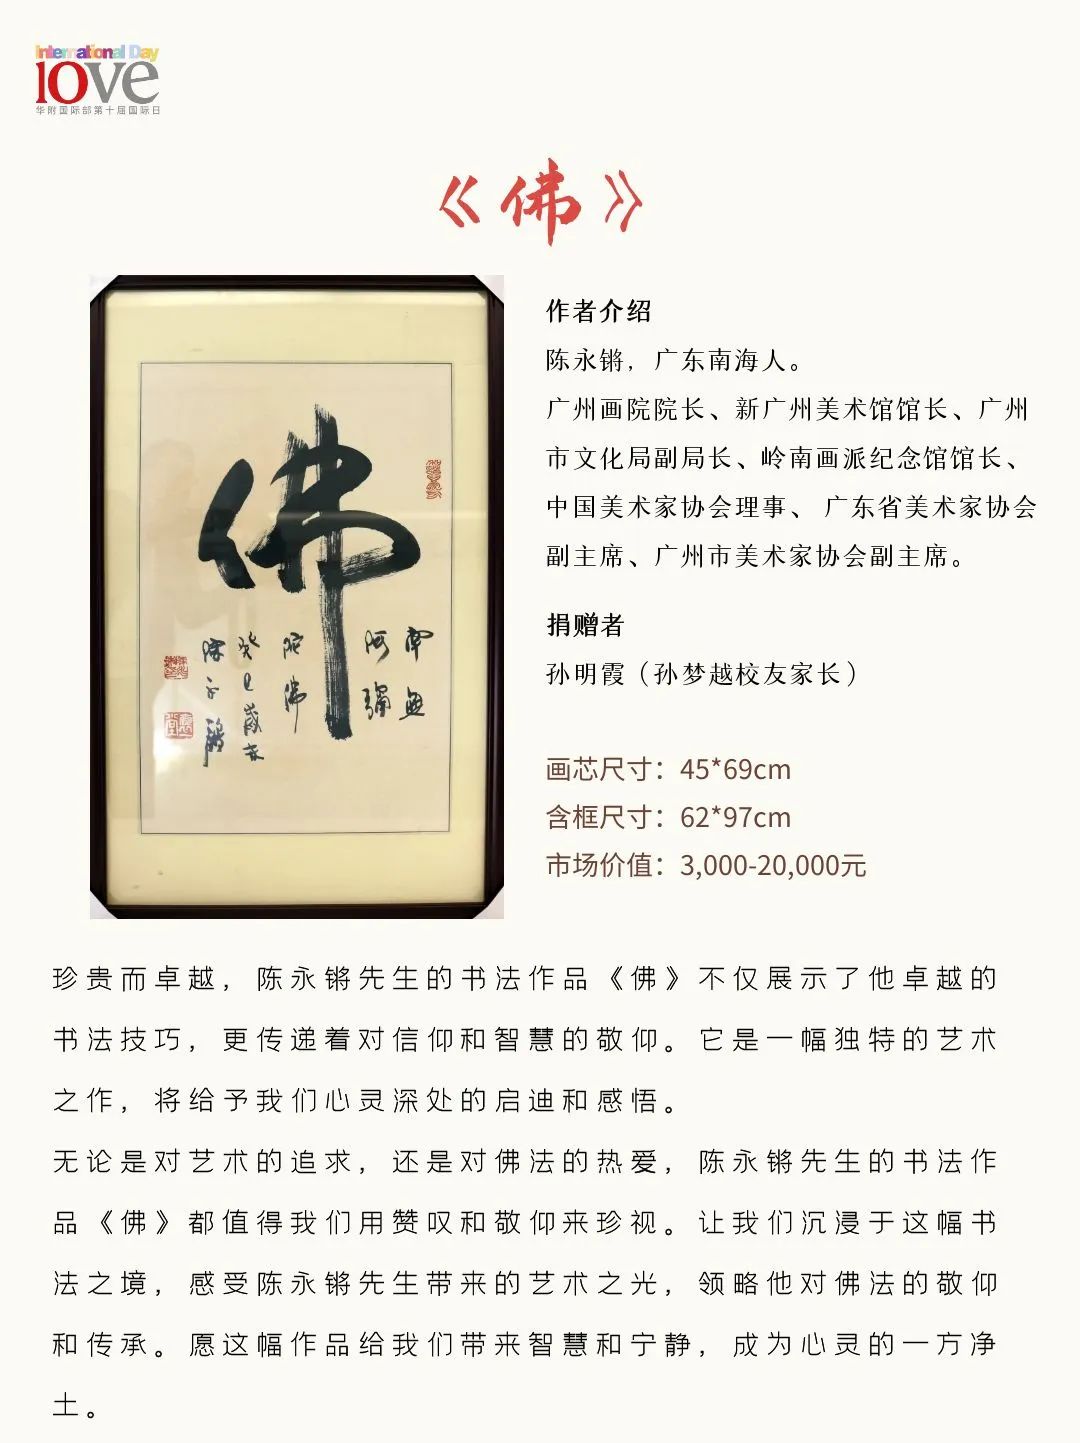 International Day
10ve
华附国际部第十届国际日
《佛》
佛
南无
阿弥
陀佛
癸巳岁末
陈永锵
作者介绍
陈永锵，广东南海人。
广州画院院长、新广州美术馆馆长、广州
市文化局副局长、岭南画派纪念馆馆长、
中国美术家协会理事、 广东省美术家协会
副主席、广州市美术家协会副主席。
捐赠者
孙明霞（孙梦越校友家长）
画芯尺寸：45*69cm
含框尺寸：62*97cm
市场价值：3,000-20,000元
珍贵而卓越，陈永锵先生的书法作品《佛》不仅展示了他卓越的
书法技巧，更传递着对信仰和智慧的敬仰。它是一幅独特的艺术
之作，将给予我们心灵深处的启迪和感悟。
无论是对艺术的追求，还是对佛法的热爱，陈永锵先生的书法作
品《佛》都值得我们用赞叹和敬仰来珍视。让我们沉浸于这幅书
法之境，感受陈永锵先生带来的艺术之光，领略他对佛法的敬仰
和传承。愿这幅作品给我们带来智慧和宁静，成为心灵的一方净
土。